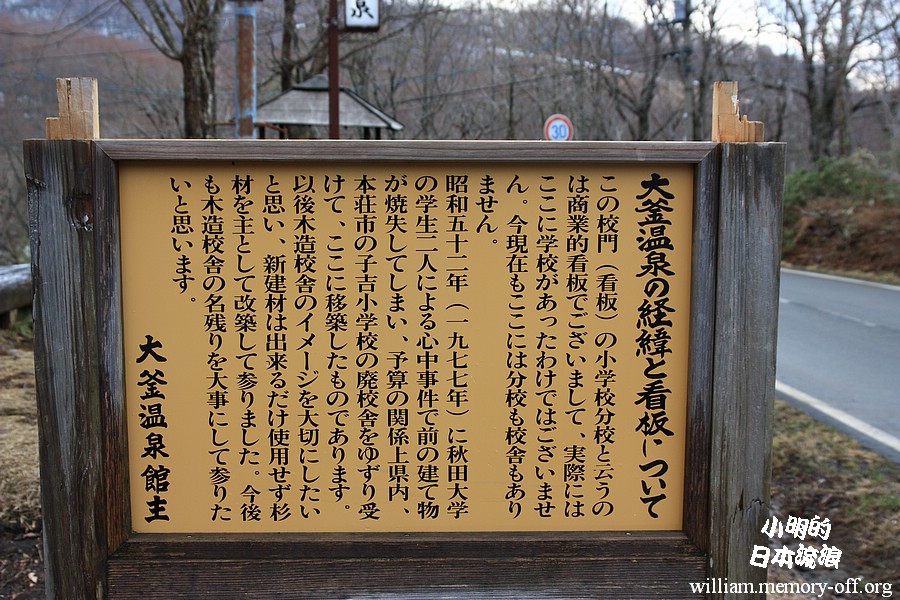 泉
30
大釜温泉の経緯と看板について
この校門（看板）の小学校分校と云うの
は商業的看板でございまして、実際には
ここに学校があったわけではございませ
ん。今現在もここには分校も校舎もあり
ません。
昭和五十二年（一九七七年）に秋田大学
の学生二人による心中事件で前の建て物
が焼失してしまい、予算の関係上県内、
本荘市の子吉小学校の廃校舎をゆずり受
けて、ここに移築したものであります。
以後木造校舎のイメージを大切にしたい
と思い、新建材は出来るだけ使用せず杉
材を主として改築して参りました。今後
も木造校舎の名残りを大事にして参りた
いと思います。
大釜温泉館主
小明的
日本流浪
william.memory-off.org